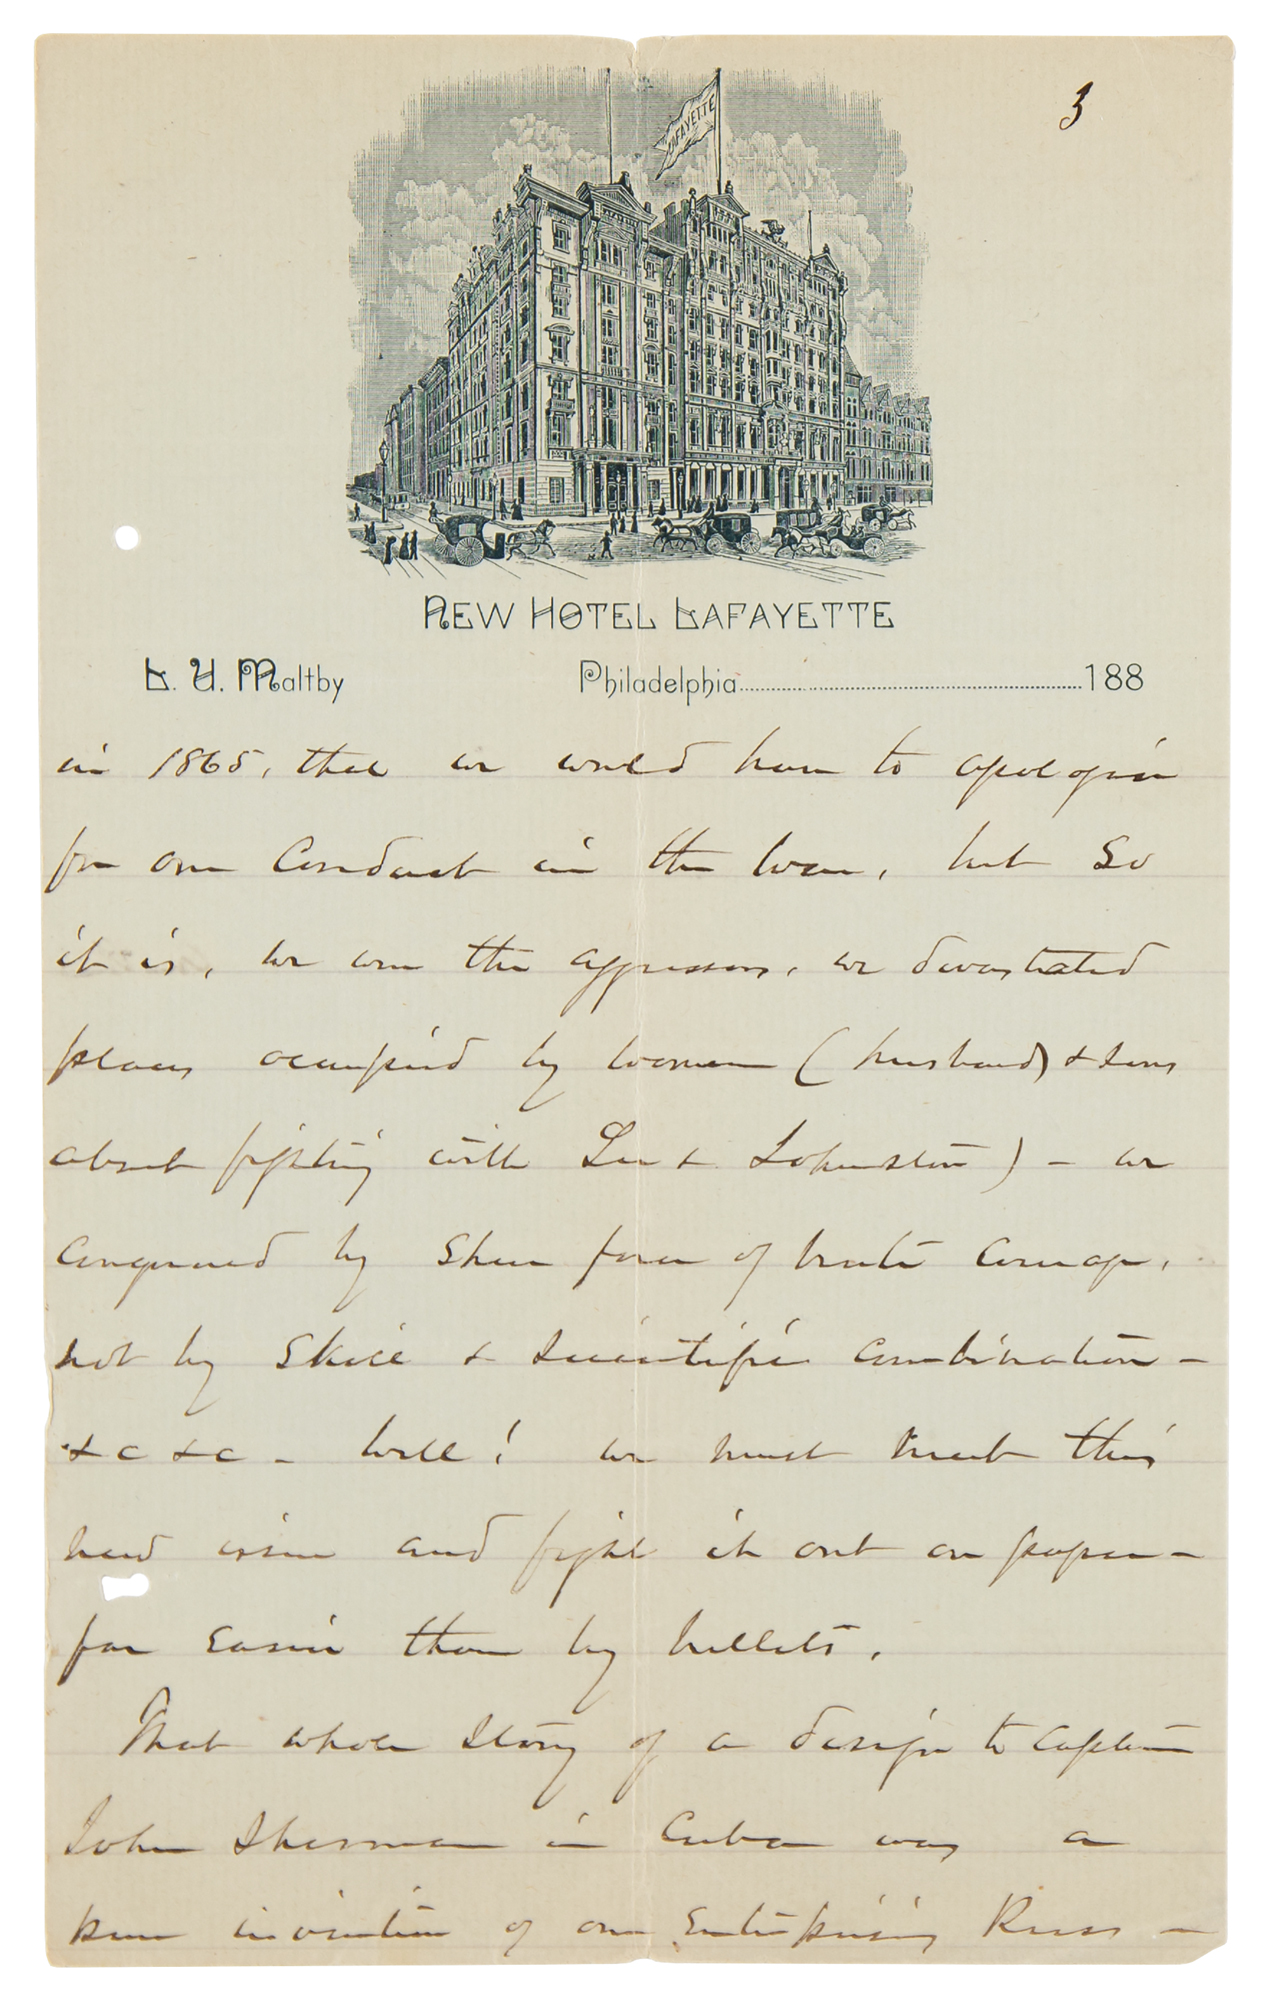 3
LAFAYETTE
NEW HOTEL LAFAYETTE
L. U. Maltby
Philadelphia 188
in 1865, that we would have to apologise
for our Conduct in the War, but So
it is, we were the aggressors, we devastated
places occupied by women (husband) & sons
absent fighting with Lee & Johnston) - we
conquered by Sheer force of brute Courage,
not by Skill & Scientific Combination -
&c &c - Well! we must meet this
new issue and fight it out on paper -
far Easier than by bullets.
That whole Story of a design to Capture
John Sherman in Cuba was a
pure invention of our Enterprising Press -